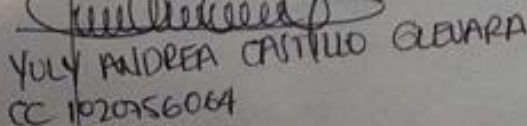 YULY ANDREA CASTILLO GUEVARA
CC 1020756064